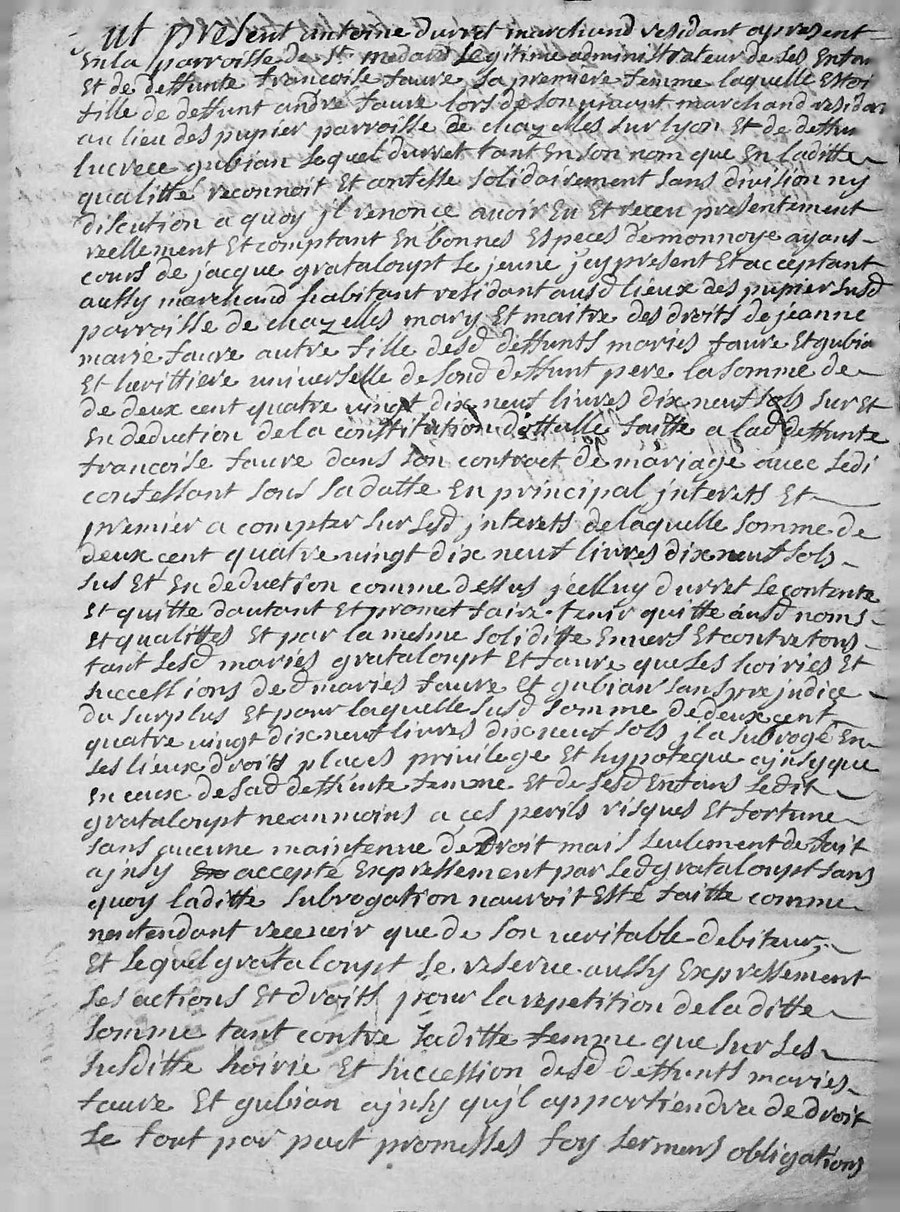 ut present anterne durret marchand residant apresent
En la parroisse de st medard Legitime administrateur de ses Enfan
Et de deffunte francoise faure sa premiere femme laquelle Estoi
fille de deffunt andré faure lors de son vivant marchand residan
au lieu des pupier parroisse de chazelles sur lyon Et de deffun
lucrece gubian Lequel durret tant En son nom que En laditte
qualitté reconnoit Et confesse solidairement sans division ny
discution a quoy jl renonce avoir Eu Et receu presentement
reellement Et comptant En bonnes Especes de monnoye ayans
cours de jacque grataloupt Le jeune jcy present Et acceptant
aussy marchand habitant residant ausd lieux des pupier susd
parroisse de chazelles mary Et maitre des droits de jeanne
marie faure autre fille desd deffunts maries faure Et gubia
Et hœrittiere universelle de sond deffunt pere la somme de
de deux cent quatre vingt dix neuf livres dix neuf sols sur Et
En deduction de la constitution dottalle faitte a lad deffunte
francoise faure dans son contract de mariage avec Ledi
confessant sous sa datte En principal jnterets Et
premier a compter sur Lesd jnterets de laquelle somme de
deux cent quatre vingt dix neuf livres dix neuf sols
sus Et En deduction comme dessus jcelluy durret se contente
Et quitte dautant Et promet faire tenir quitte ausd noms
Et qualittes Et par la mesme soliditte Envers Et contre tous
tant Lesd maries grataloupt Et faure que Les hoiries Et
successions de d maries faure Et gubian sans prejudice
du surplus Et pour laquelle susd somme de deux cent
quatre vingt dix neuf livres dix neuf sols jl a subrogé En
ses lieux droits places privilege Et hypoteque ajnsy que
En ceux de sad deffunte femme Et de sesd Enfans Ledit
grataloupt neanmoins a ces perils risques Et fortune
sans aucune maintenue de droit mais seulement de fait
ajnsy accepté Expressement par Led grataloupt sans
quoy laditte subrogation nauroit Esté faitte comme
nentendant recevoir que de son veritable debiteur,
Et Lequel grataloupt se reserve aussy Expressement
ses actions Et droits pour la repetition de laditte
somme tant contre saditte femme que sur Les
susditte hoirie Et succession desd deffunts maries
faure Et gubian ajnsy qu'jl appartiendra de droit
Le tout par pact promesses foy sermens obligations